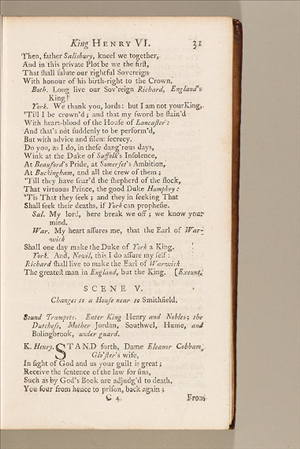 King HENRY VI. 31
Then, father Salisbury, kneel we together,
And in this private Plot be we the first,
That shall salute our rightful Sovereign
With honour of his birth-right to the Crown.
Both. Long live our Sov'reign Richard, England's
King!
York. We thank you, lords: but I am not your King,
'Till I be crown'd; and that my sword be stain'd
With heart-blood of the House of Lancaster:
And that's not suddenly to be perform'd,
But with advice and silent secrecy.
Do you, as I do, in these dang'rous days,
Wink at the Duke of Suffolk's Insolence,
At Beauford's Pride, at Somerset's Ambition,
At Buckingham, and all the crew of them;
'Till they have snar'd the shepherd of the flock,
That virtuous Prince, the good Duke Humphry:
'Tis That they seek; and they in seeking That
Shall seek their deaths, if York can prophesie.
Sal. My lord, here break we off; we know your
mind.
War. My heart assures me, that the Earl of War-
wick
Shall one day make the Duke of York a King.
York. And, Nevil, this I do assure my self:
Richard shall live to make the Earl of Warwick
The greatest man in England, but the King. [Exeunt.
SCENE V.
Changes to a House near to Smithfield.
Sound Trumpets. Enter King Henry and Nobles; the
Dutchess, Mother Jordan, Southwel, Hume, and
Bolingbrook, under guard.
K. Henry. STAND forth, Dame Eleanor Cobham,
Glo'ster's wife,
In sight of God and us your guilt is great;
Receive the sentence of the law for sins,
Such as by God's Book are adjudg'd to death.
You four from hence to prison, back again;
C 4 From